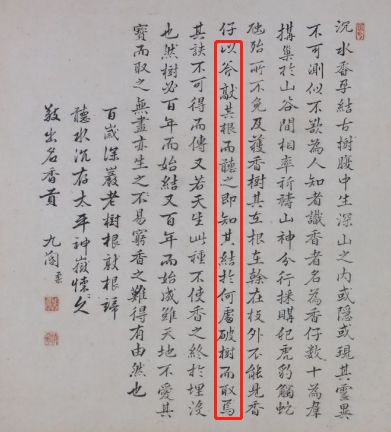 沉水香孕結古樹腹中生深山之内或隱或現其靈異
不可測似不欲為人知者識香者名為香仔數十為羣
搆巢於山谷間相率祈禱山神分行採購犯虎豹觸蛇
虺殆所不免及獲香樹其在根在幹在枝外不能見香
仔以斧敲其根而聽之即知其結於何處破樹而取焉
其訣不可得而傳又若天生此種不使香之終於埋沒
也然樹必百年而始結又百年而始成雖天地不愛其
寶而取之無盡亦生之不易窮香之難得有由然也
百歲深巖老樹根敲根諦
聽水沉存太平神嶽悽悽久
敎出名香貢 九閽